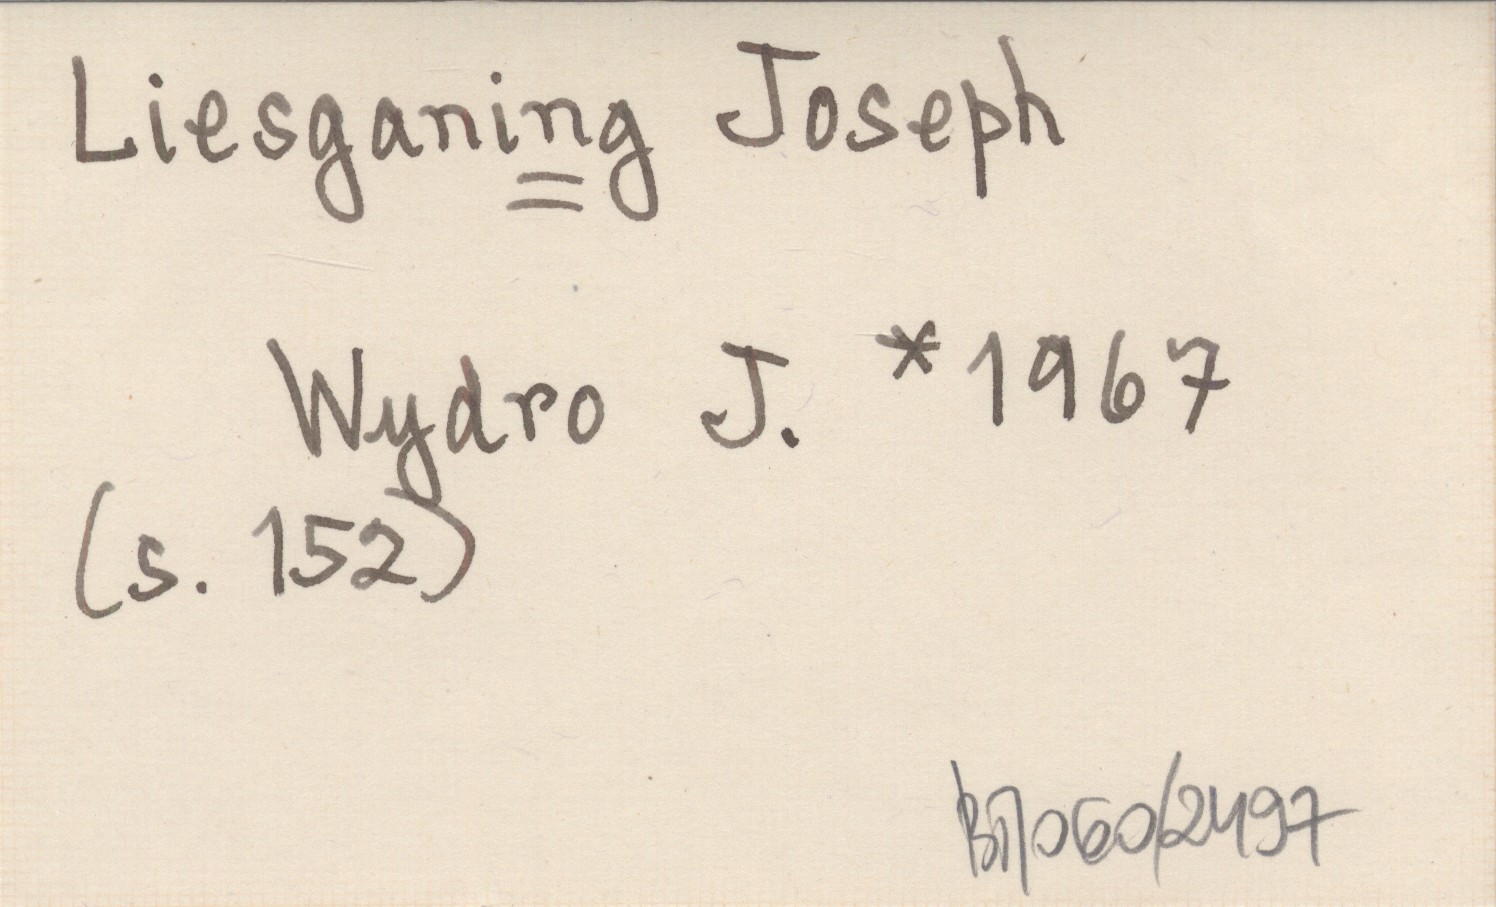 Liesganing Joseph
Wydro J. *1967
(s. 152)
BI/060/2497